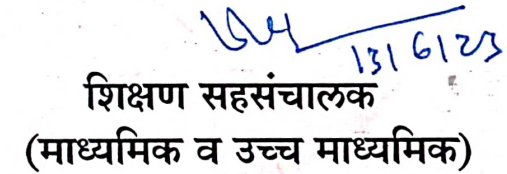 13/6/23
शिक्षण सहसंचालक
(माध्यमिक व उच्च माध्यमिक)